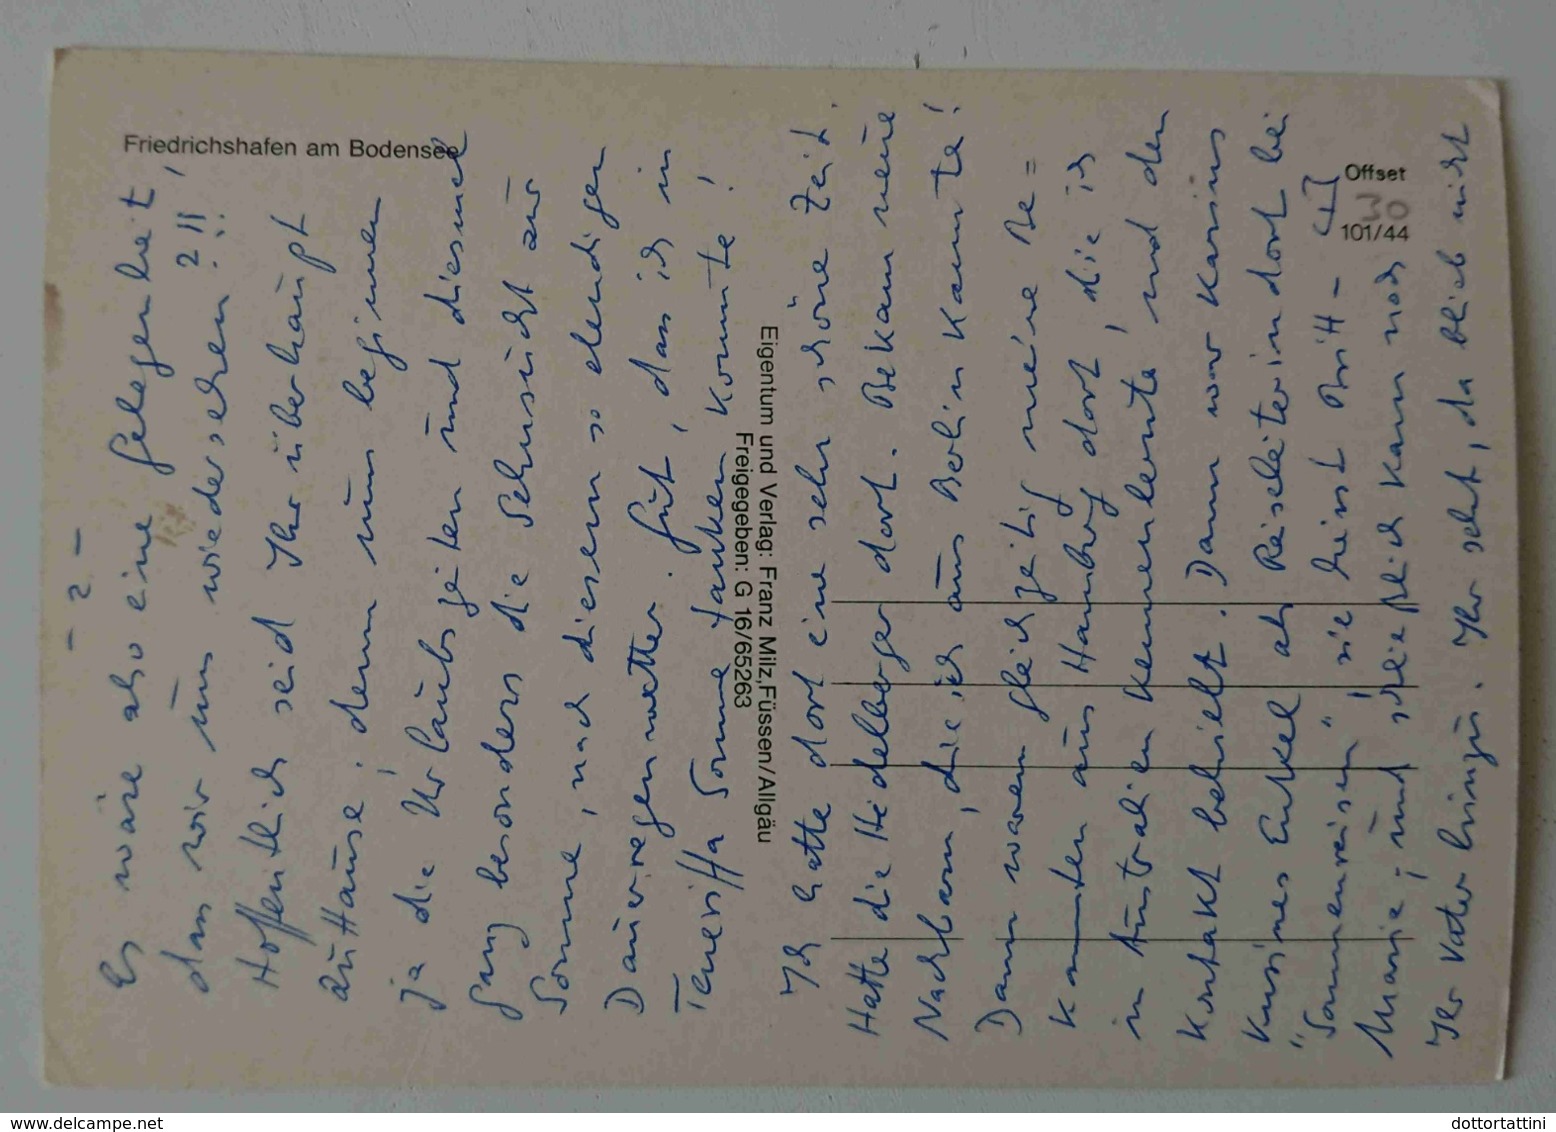 Friedrichshafen am Bodensee
- 2 -
Es wäre also eine Gelegenheit,
dass wir uns wiedersehen?!!
Hoffentlich seid Ihr überhaupt
zu Hause; denn nun beginnen
ja die Urlaubszeiten und diesmal
ganz besonders die Sehnsucht zur
Sonne, nach diesem so elendigen
Dauerregenwetter. Gut, dass ich in
Teneriffa Sonne tanken konnte!
Eigentum und Verlag: Franz Milz, Füssen/Allgäu
Freigegeben: G 16/65263
Ich hatte dort eine sehr schöne Zeit.
Hatte die Heidelberger dort. Bekam neue
Nachbarn, die ich aus Berlin kannte!
Dann waren gleichzeitig meine Be=
kannten aus Hamburg dort, die ich
in Australien kennenlernte und den
Kontakt behielt. Dann war Karins
Kusines Enkel als Reiseleiterin dort bei
"Sonnenreisen", sie heisst Britt-
Offset
101/44
30
Manje; und schließlich kam noch
Ihr Vater hinzu. Ihr seht, da blieb nicht
dottortattini